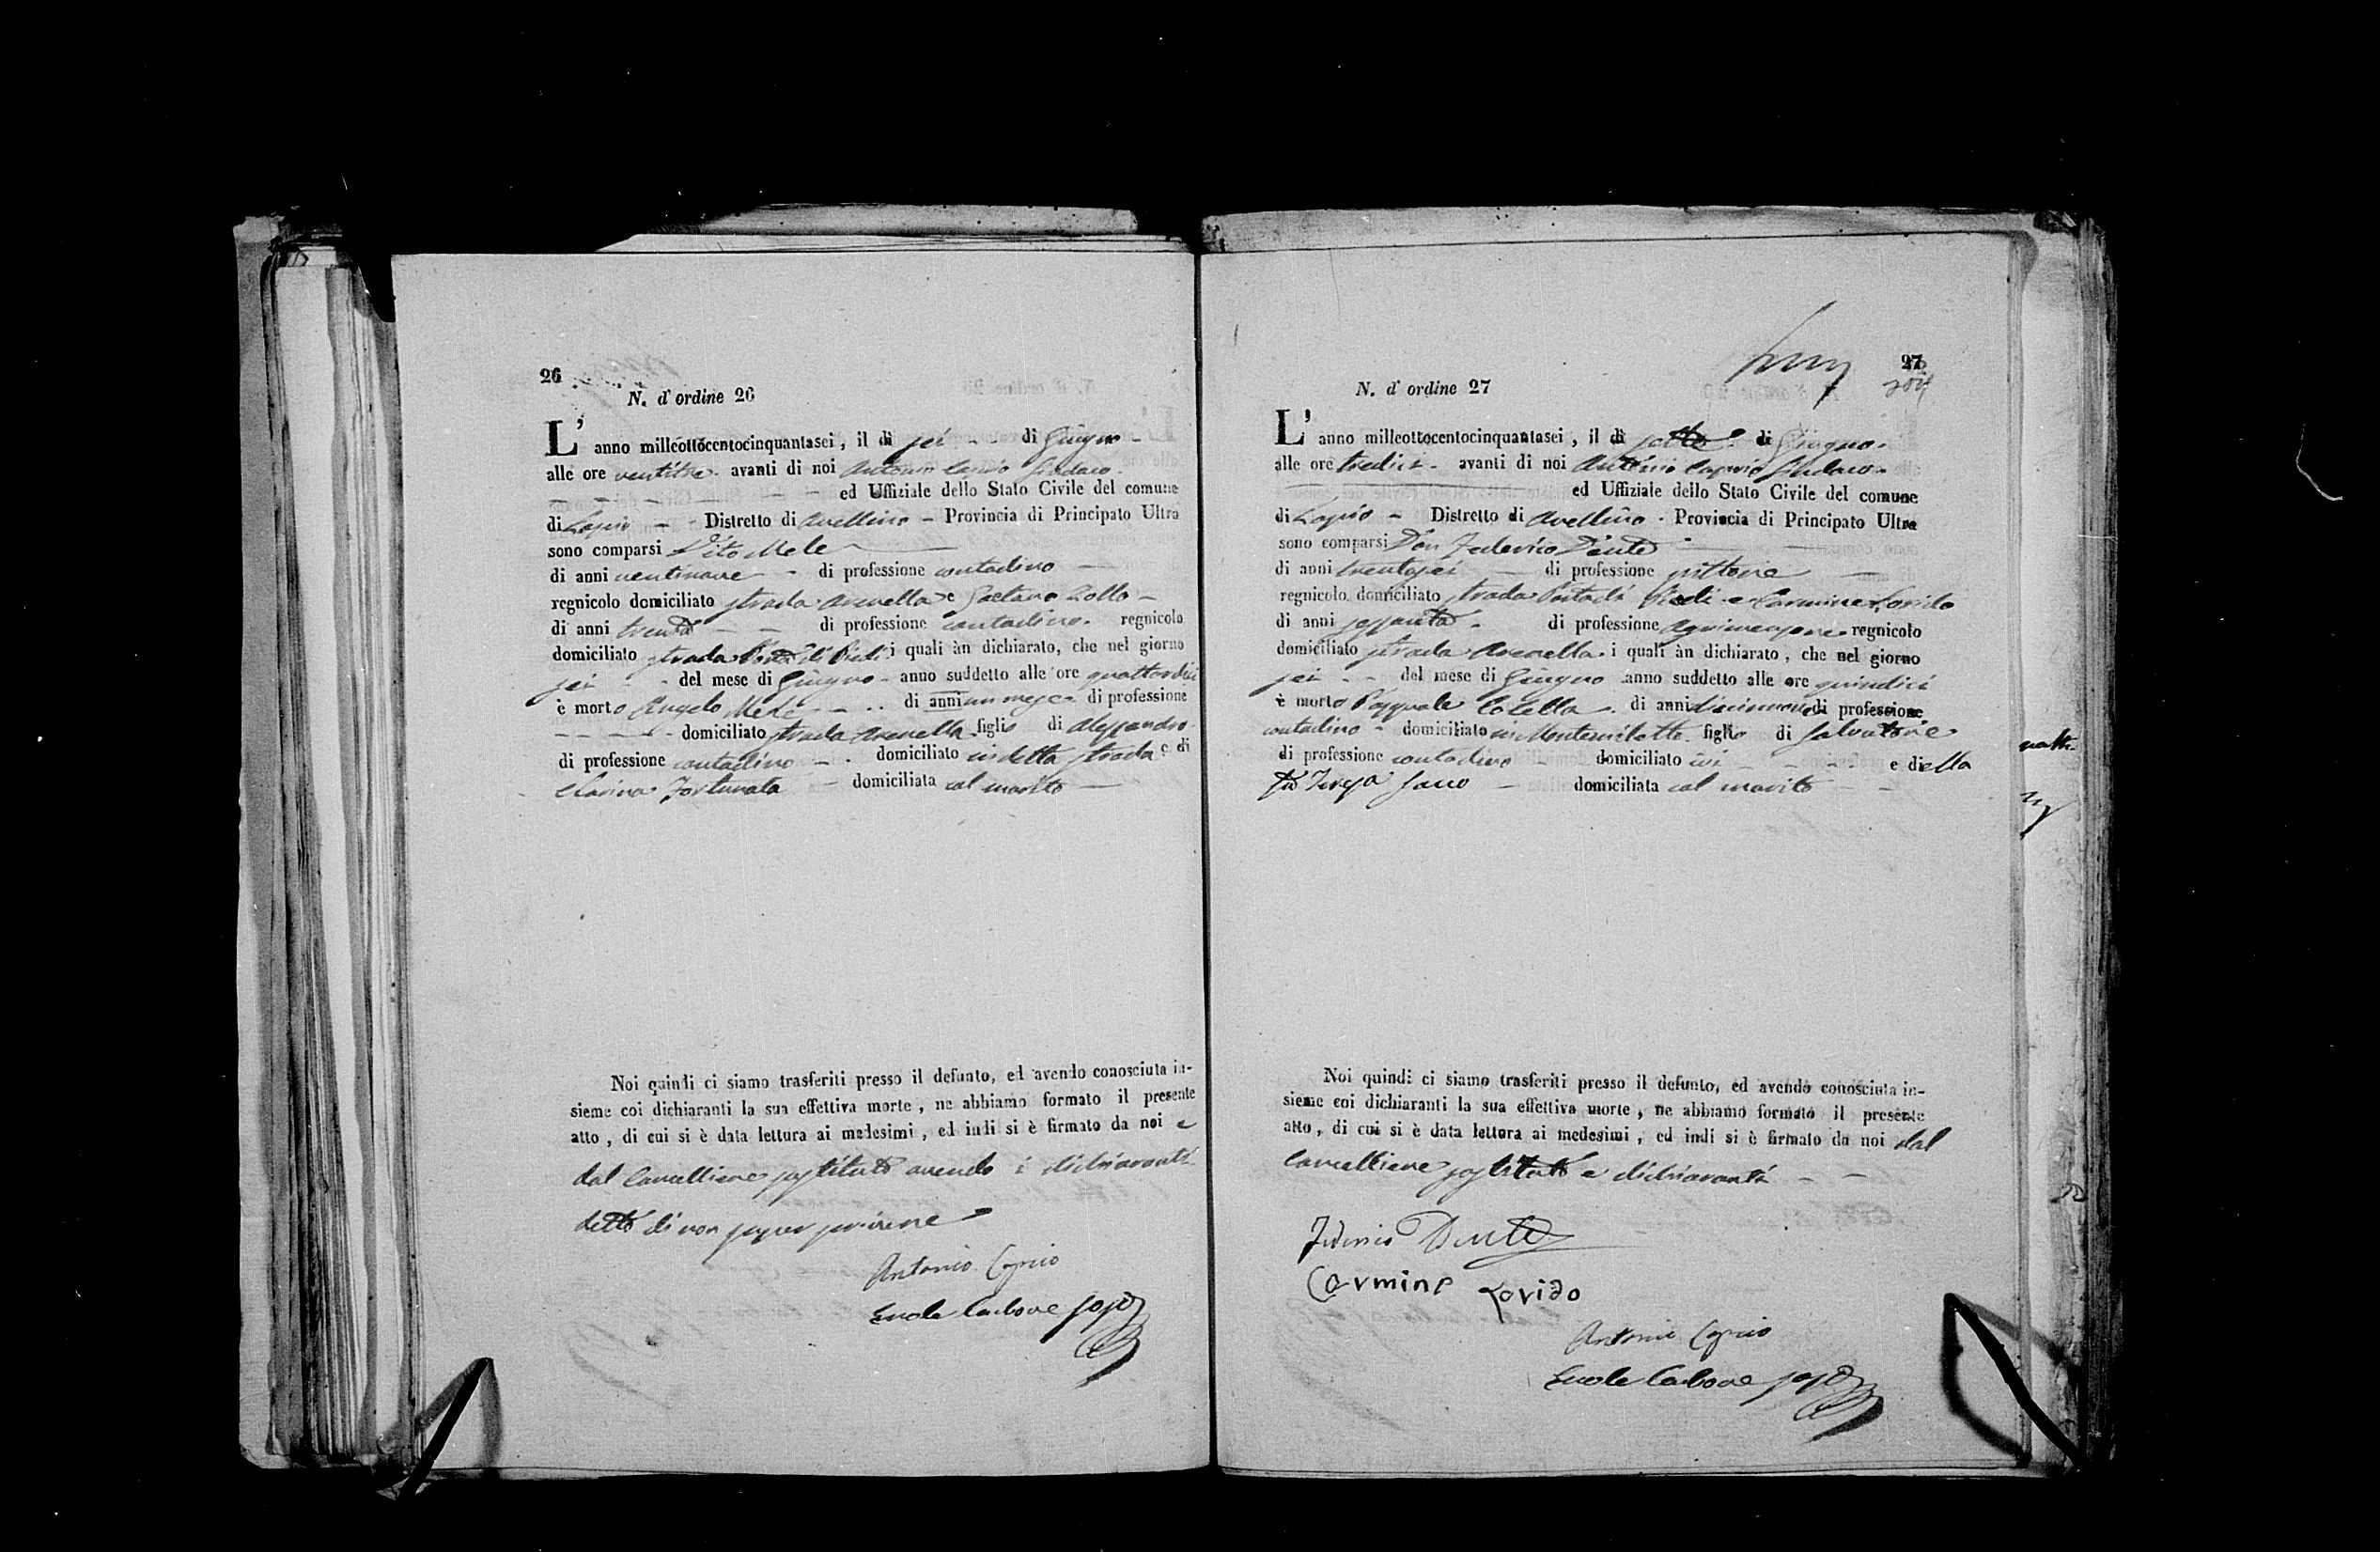 26
N. d' ordine 26
L' anno milleottocentocinquantasei, il dì sei di Giugno
alle ore ventitre avanti di noi Antonio Caprio Sindaco
ed Uffiziale dello Stato Civile del comune
di Lapio Distretto di Avellino Provincia di Principato Ultra
sono comparsi Vito Mele
di anni ventinove di professione contadino
regnicolo domiciliato strada Arenella e Gaetano Lollo
di anni trenta di professione contadino regnicolo
domiciliato strada Porta di Piedi i quali àn dichiarato, che nel giorno
sei del mese di Giugno anno suddetto alle ore quattordici
è morto Angelo Mele di anni un mese di professione
domiciliato strada Arenella figlio di Alessandro
di professione contadino domiciliato in detta strada e di
Clarina Fortunata domiciliata col marito
Noi quindi ci siamo trasferiti presso il defunto, ed avendo conosciuta in-
sieme coi dichiaranti la sua effettiva morte, ne abbiamo formato il presente
atto, di cui si è data lettura ai medesimi, ed indi si è firmato da noi e
dal Cancelliere sostituto avendo i dichiaranti
detto di non saper scrivere
Antonio Caprio
Carbone sosto
27
N. d' ordine 27
L' anno milleottocentocinquantasei, il dì sette di Giugno
alle ore tredici avanti di noi Antonio Caprio Sindaco
ed Uffiziale dello Stato Civile del comune
di Lapio Distretto di Avellino Provincia di Principato Ultra
sono comparsi Don Federico Dente
di anni trentasei di professione pittore
regnicolo domiciliato strada Porta di Piedi e Carmine Lovido
di anni sessanta di professione agrimensore regnicolo
domiciliato strada Arenella i quali àn dichiarato, che nel giorno
sei del mese di Giugno anno suddetto alle ore quindici
è morto Pasquale Colella di anni diecinnove di professione
contadino domiciliato in Montemiletto figlio di Salvatore
di professione contadino domiciliato ivi e di ella
Teresa Sacco domiciliata col marito
Noi quindi ci siamo trasferiti presso il defunto, ed avendo conosciuta in-
sieme coi dichiaranti la sua effettiva morte, ne abbiamo formato il presente
atto, di cui si è data lettura ai medesimi, ed indi si è firmato da noi dal
Cancelliere sostituto e dichiaranti
Federico Dente
Carmine Lovido
Antonio Caprio
Carbone sosto